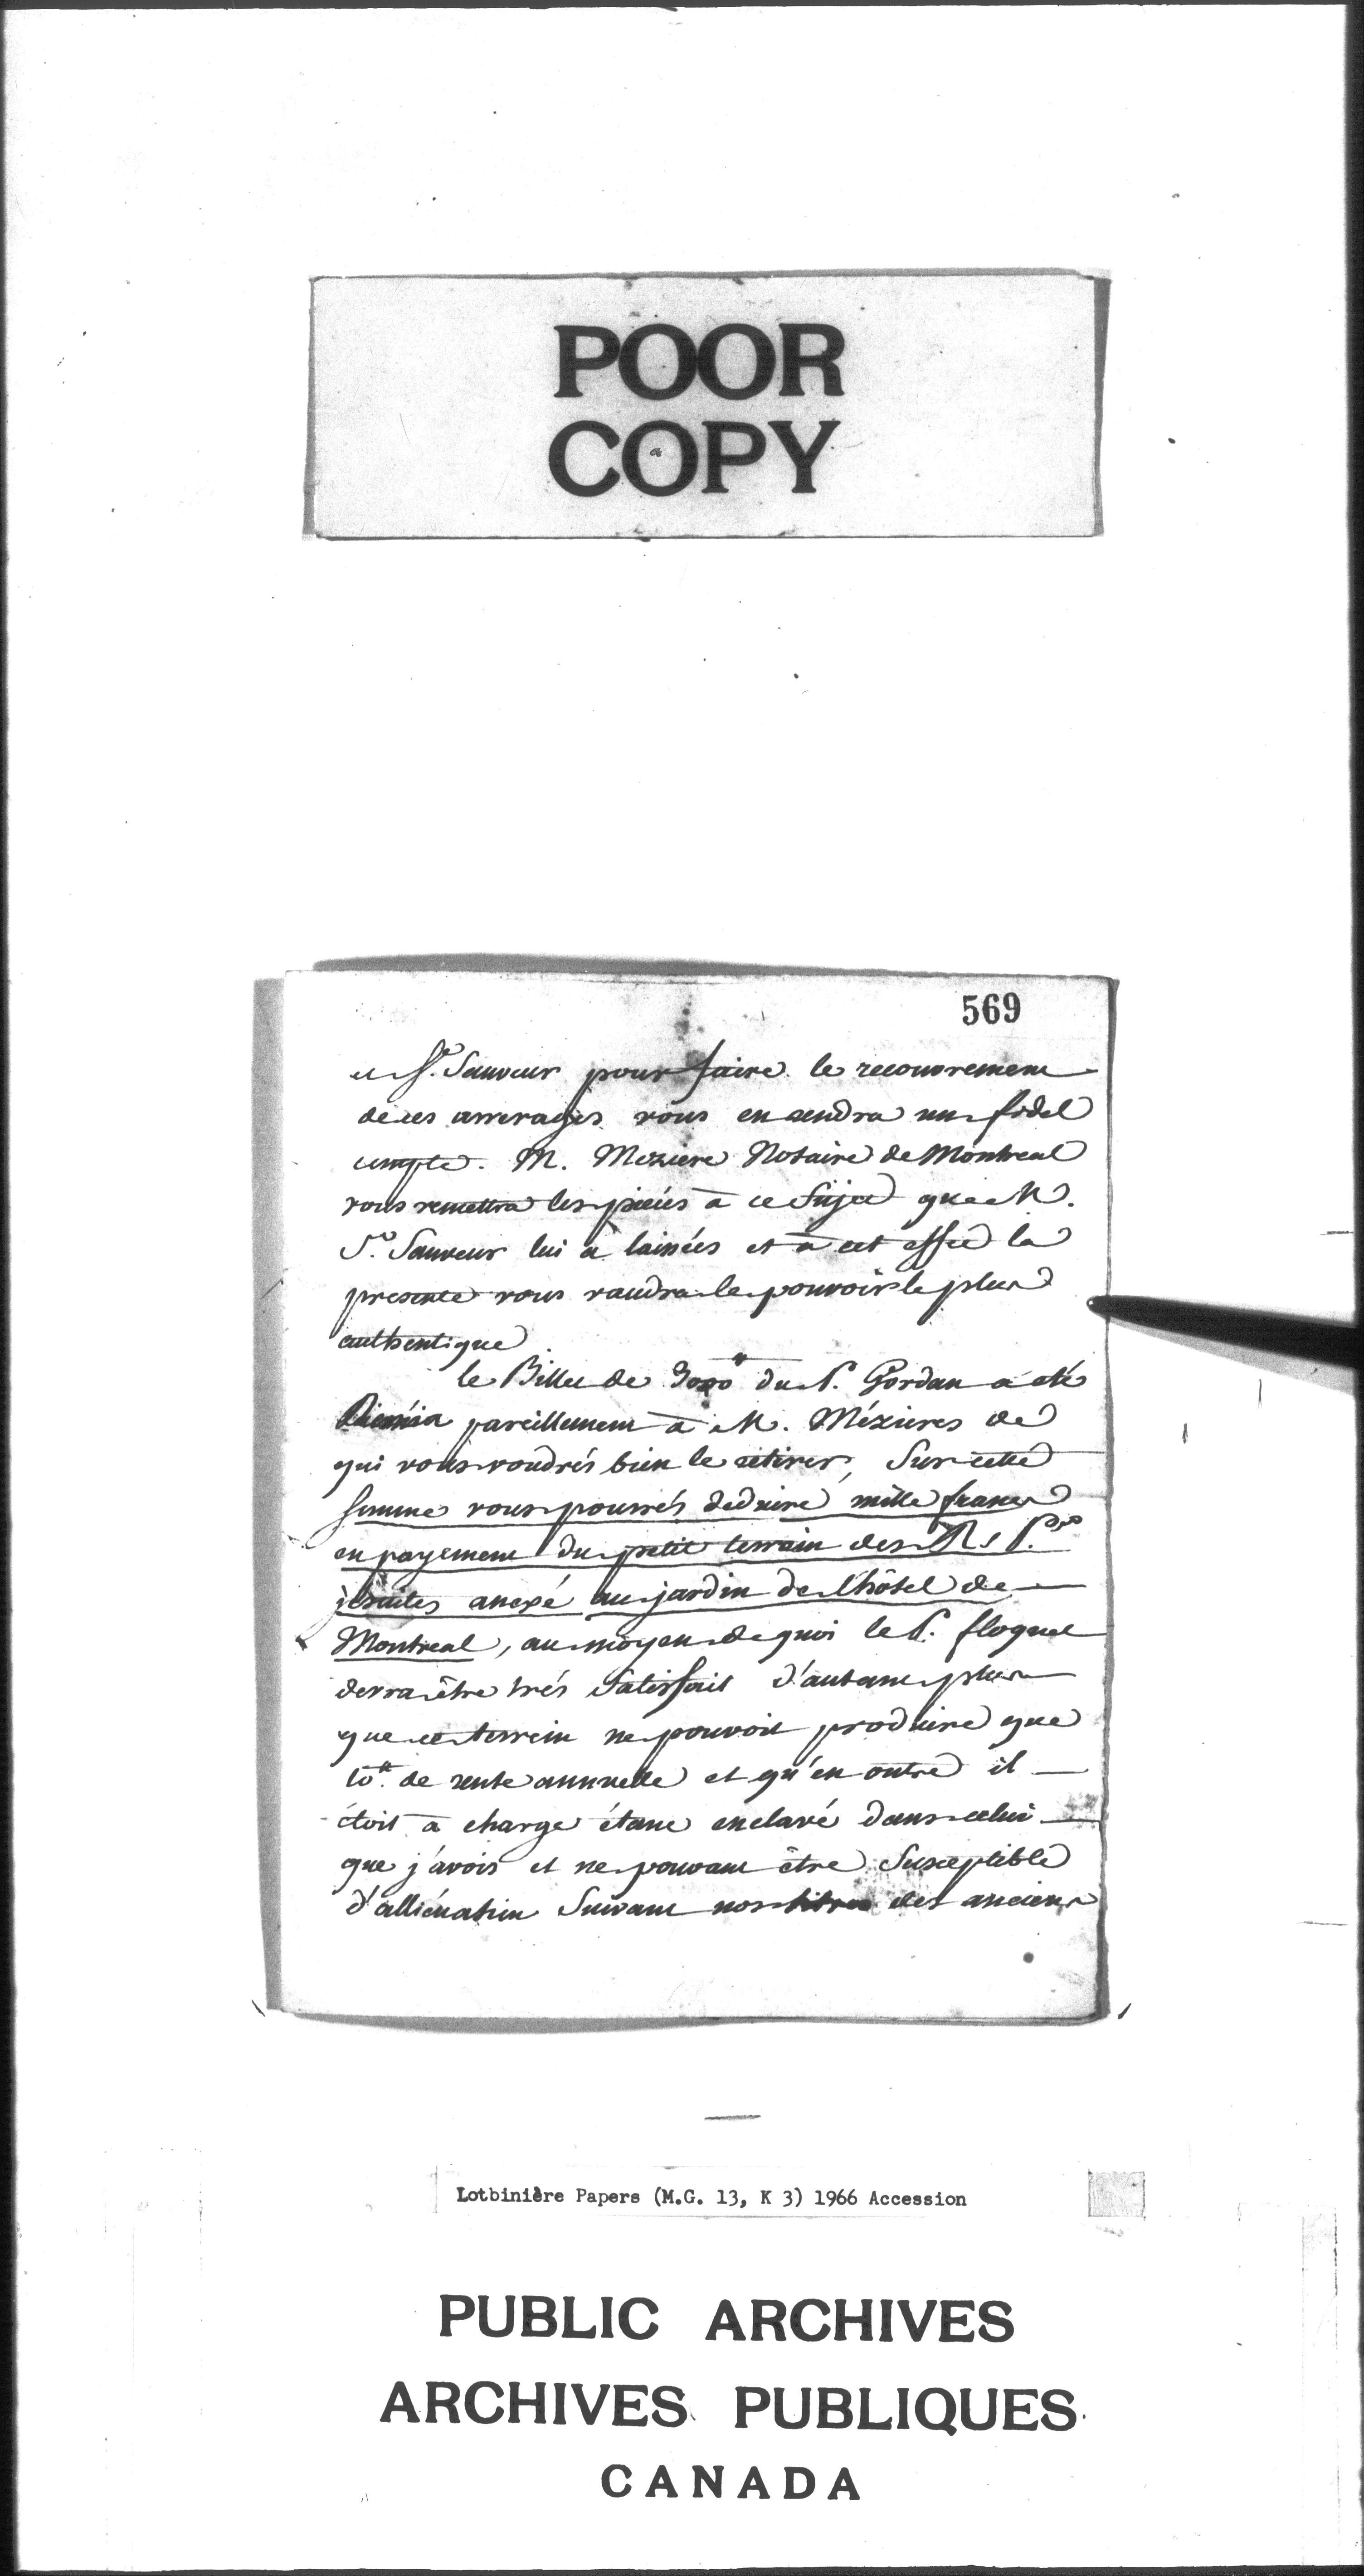 POOR
COPY
569
St. Sauveur pour faire le recouvrement
de ces arrerages vous en rendra un fidel
compte. M. Meziere Notaire de Montreal
vous remettra les pieces a ce Sujet que M.
St. Sauveur lui a laissées et a cet effet la
presente vous vaudra le pouvoir le plus
authentique
le Billet de du P. Gordan a eté
pareillement a M. Méziéres de
qui vous voudrés bien le retirer, Sur cette
somme vous pourrés deduire mille francs
en payement du petit terrain des RR. P.
jesuites anexé au jardin de l'hôtel de
Montreal, au moyen de quoi le P. floquet
devra être trés Satisfait d'autant plus
que ce terrein ne pouvoit produire que
10# de rente annuelle et qu'en outre il
étoit a charge étant enclavé dans celui
que j'avois et ne pouvant être Susceptible
d'alliénation Suivant nos titres des anciens
Lotbinière Papers (M.G. 13, K 3) 1966 Accession
PUBLIC ARCHIVES
ARCHIVES PUBLIQUES
CANADA